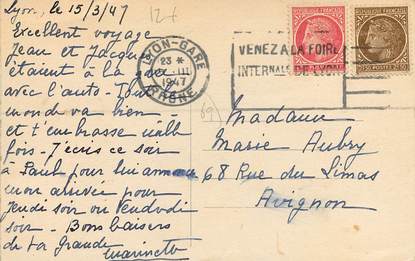 Lyon, le 15/3/47
Excellent voyage
Jean et Jacques
étaient à la gare
avec l'auto - Tout le
monde va bien -
et t'embrasse mille
fois - J'écris ce soir
à Paul pour lui annoncer
mon arrivée pour
jeudi soir ou vendredi
soir - Bons baisers
de ta grande
LYON-GARE
23 *
III
1947
RHÔNE
VENEZ A LA FOIRE
INTERNALE DE LYON
POSTES
Madame
Marie Aubry
68 Rue du Limas
Avignon